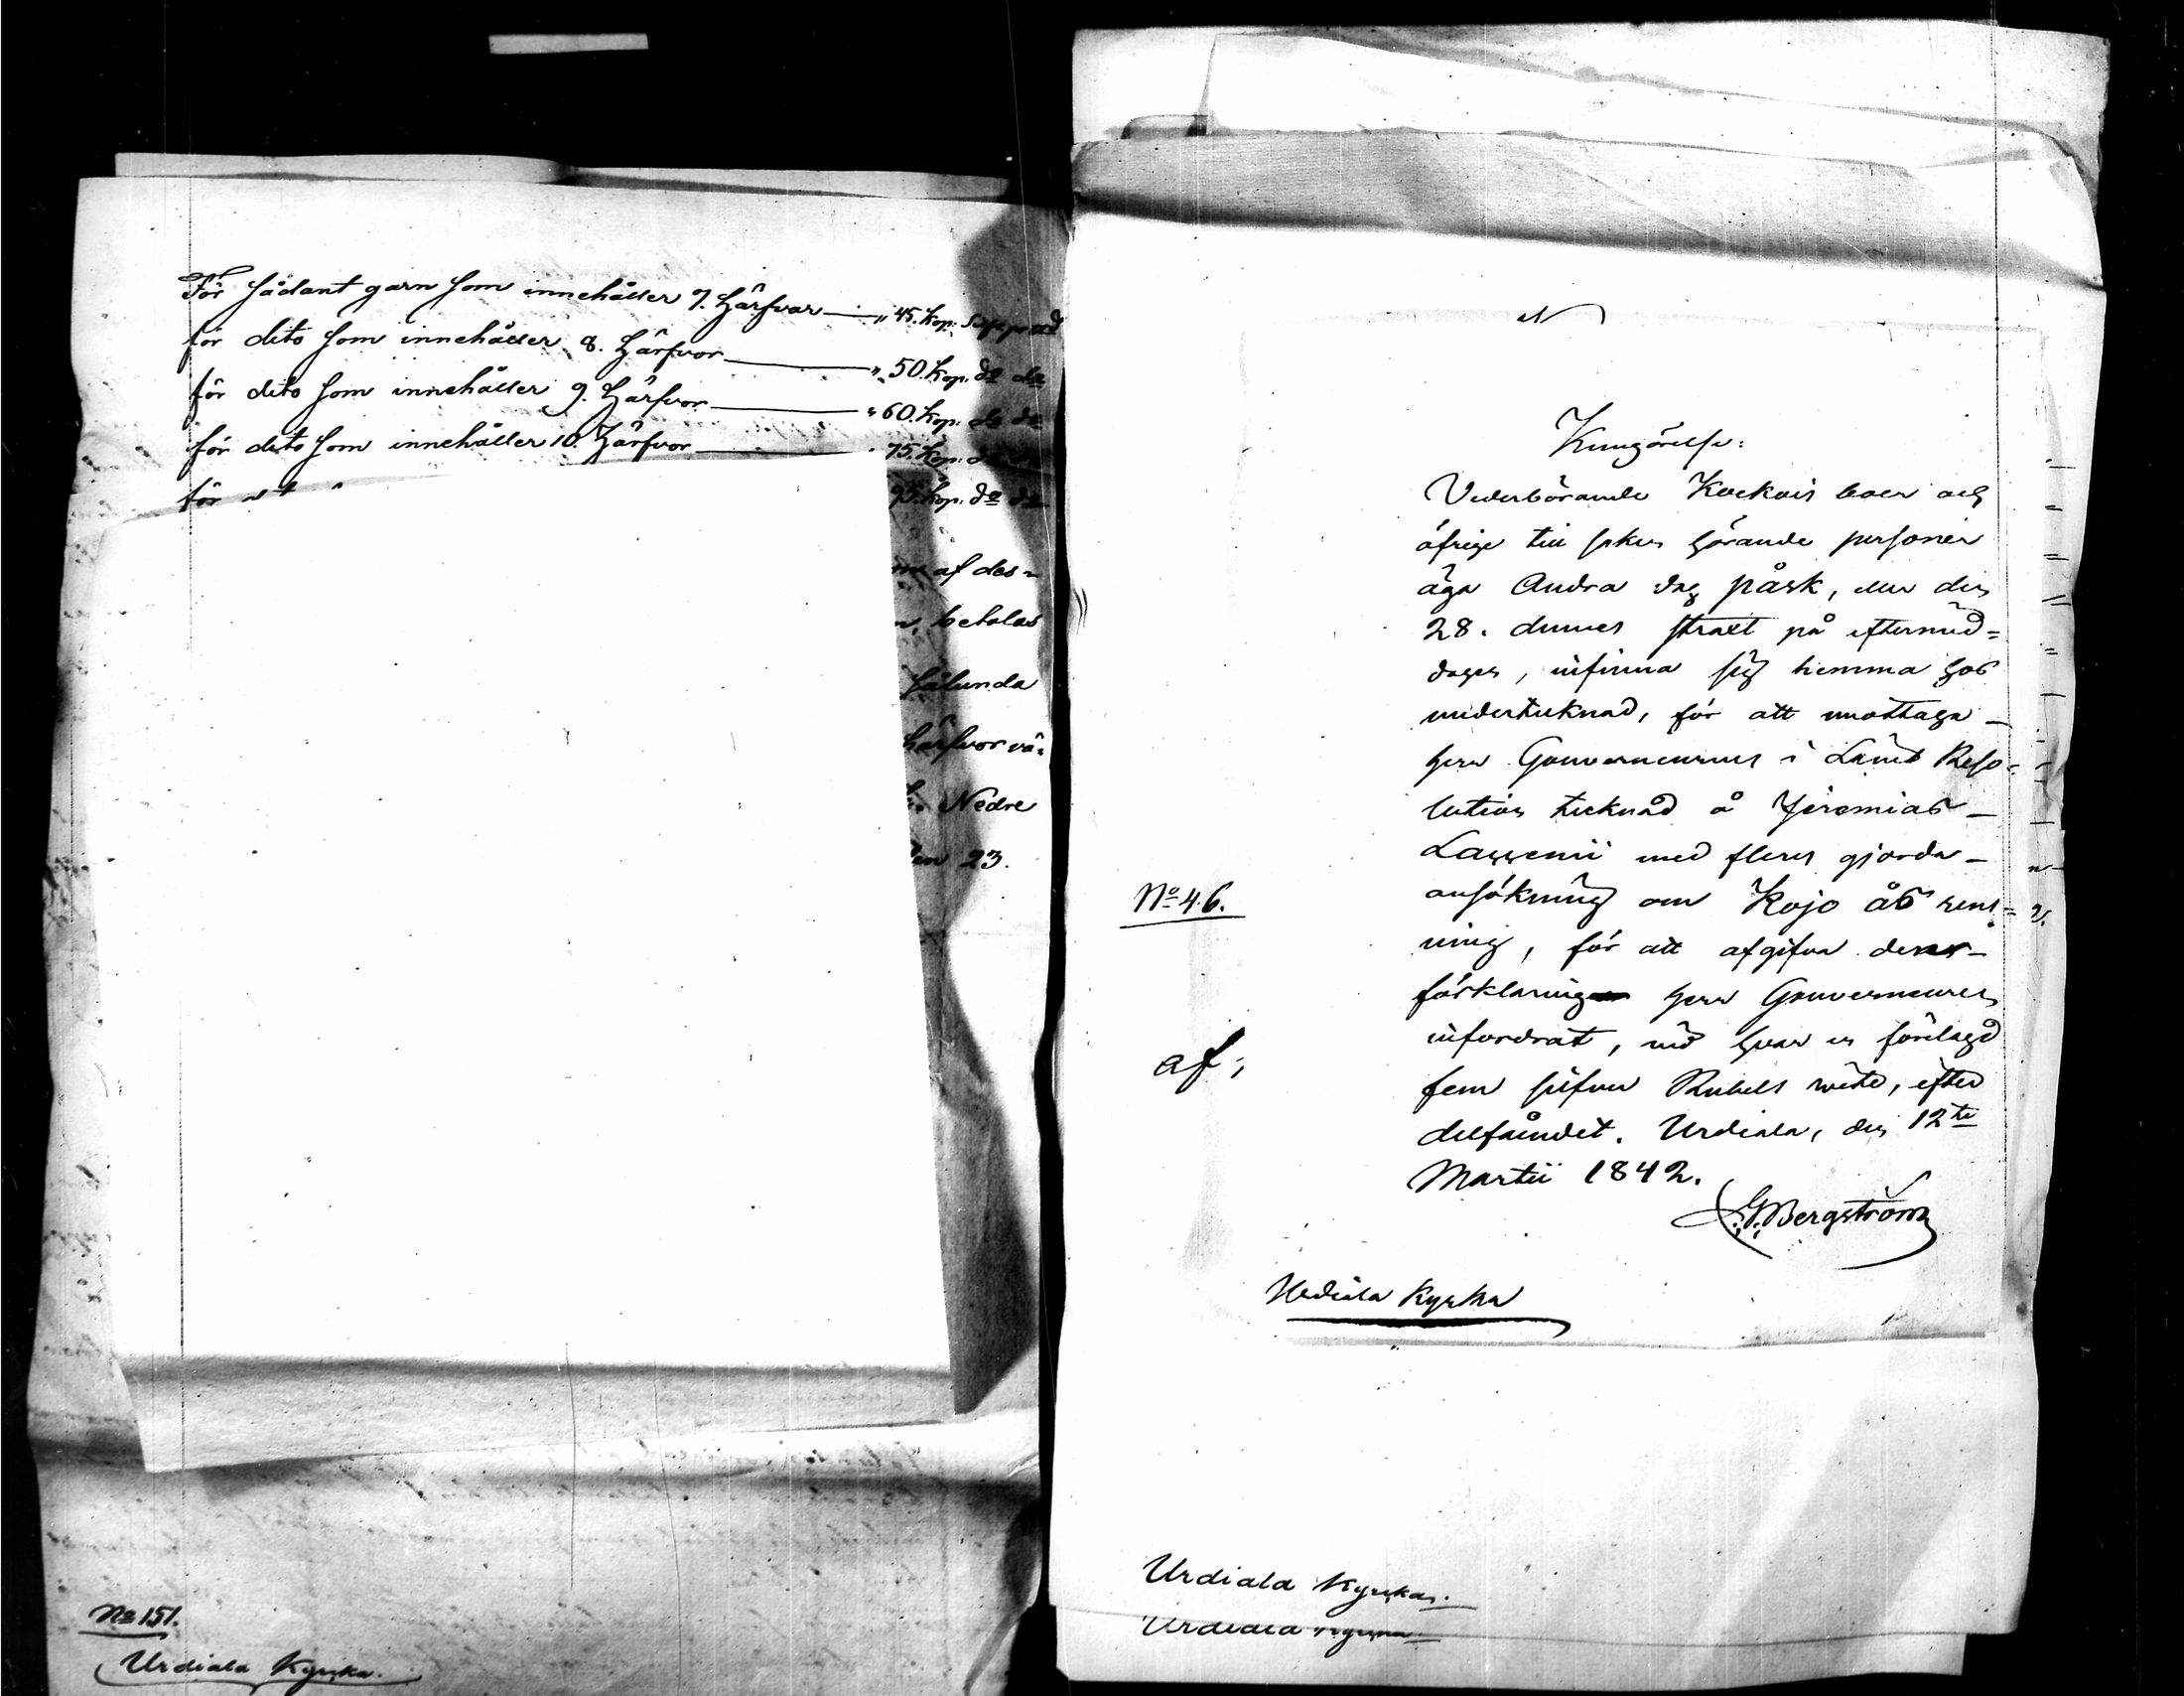 För sådant garn som innehåller 7. härfvor — „ 45. kop: Silf:
för dito som innehåller 8. härfvor — „ 50. kop. do do
för dito som innehåller 9. härfvor — „ 60. kop. do do
för dito som innehåller 10. härfvor — 75. kop: do
för
kop. do do
af des=
betalas
sålunda
härfvor vä=
Nedre
den 23.
No 151.
Urdiala Kyrka.
Kungörelse:
Vederbörande Kockois boer och
öfrige till saken hörande personer
äga Andra dag påsk, eller den
28. dennes straxt på eftermid=
dagen, infinna sig hemma hos
undertecknad, för att mottaga
herr Gouverneurens i Länet Reso=
lution tecknad å Jeremias
med flerés gjorda
ansökning om Kojo ås rens=
ning, för att afgifva den
förklaring herr Gouverneuren
infordrat, vid hvar en förelagd
fem silfver Rubels vite, efter
delfåendet. Urdiala, den 12te
Martii 1842.
G. Bergström
No 46.
af;
Urdiala Kyrka
Urdiala Kyrka.
Urdiala Kyrka